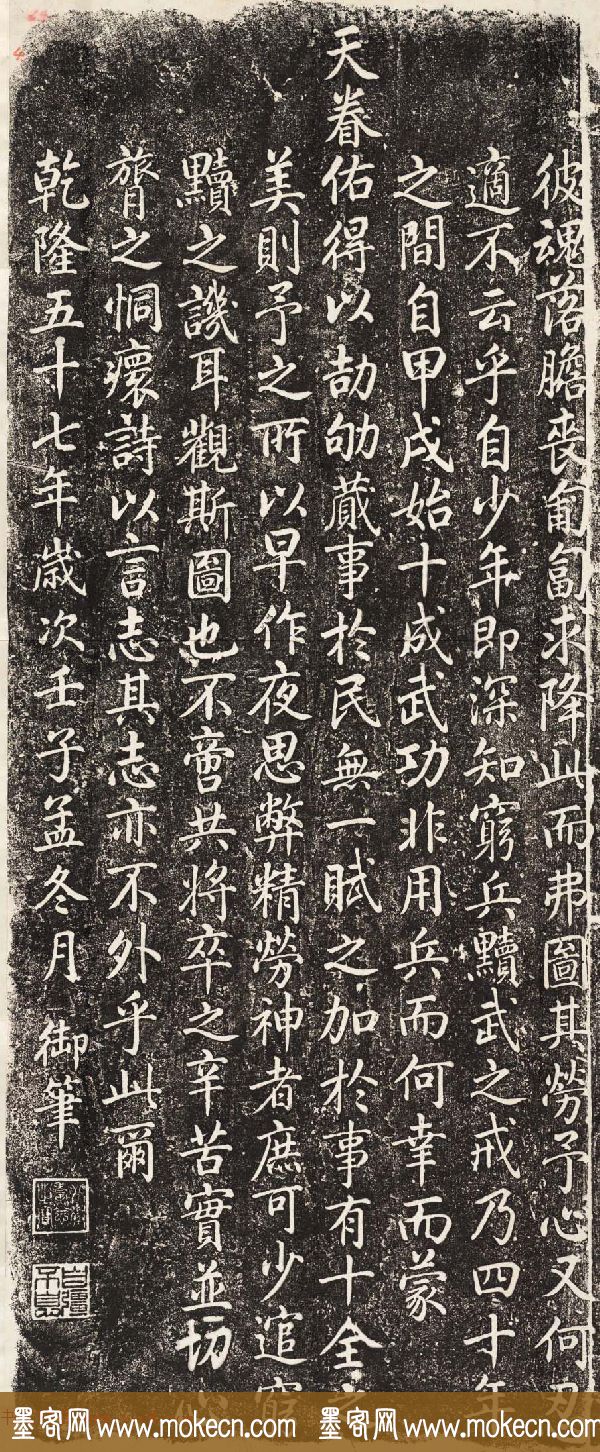 彼魂落膽喪匍匐求降此而弗圖其勞予心又何忍
適不云乎自少年即深知窮兵黷武之戒乃四十年
之間自甲戌始十成武功非用兵而何幸而蒙
天眷佑得以劼劬蕆事於民無一賦之加於事有十全之
美則予之所以早作夜思弊精勞神者庶可少逭窮
黷之譏耳觀斯圖也不啻共將卒之辛苦實並切
膂之恫瘝詩以言志其志亦不外乎此爾
乾隆五十七年歲次壬子孟冬月 御筆
自彊不息
墨客网 www.mokecn.com 墨客网 www.mokecn.com